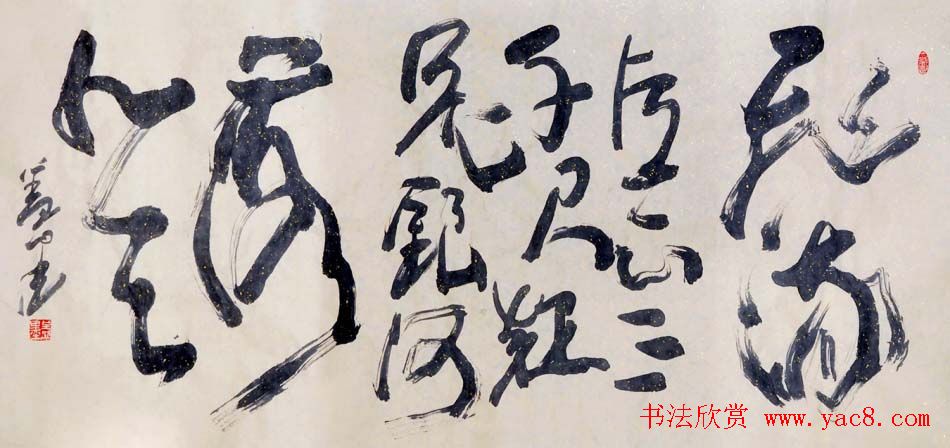 飛流
直下三
千尺疑
是銀河
落
九天
书法欣赏 www.yac8.com